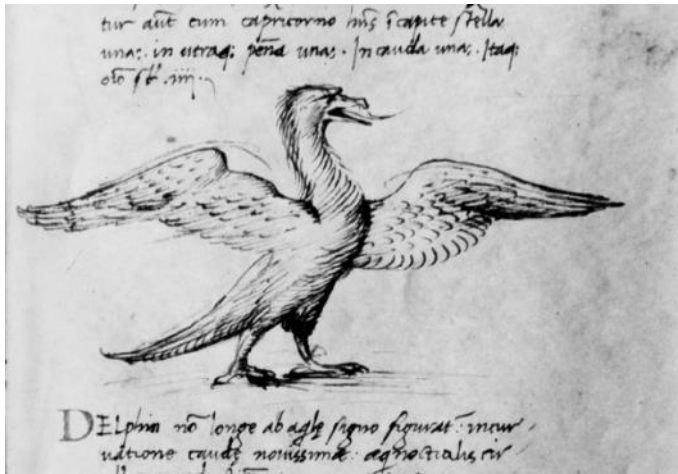 tur aūt cum capricorno hns ī capite stella
una:. in utraq; pēna una:. In cauda una:. Itaq;
oīo st .iiij.
DELphin nō longe ab aqlę signo figurat: incur
vatione caudę novissimae. aeqnoctialis cir